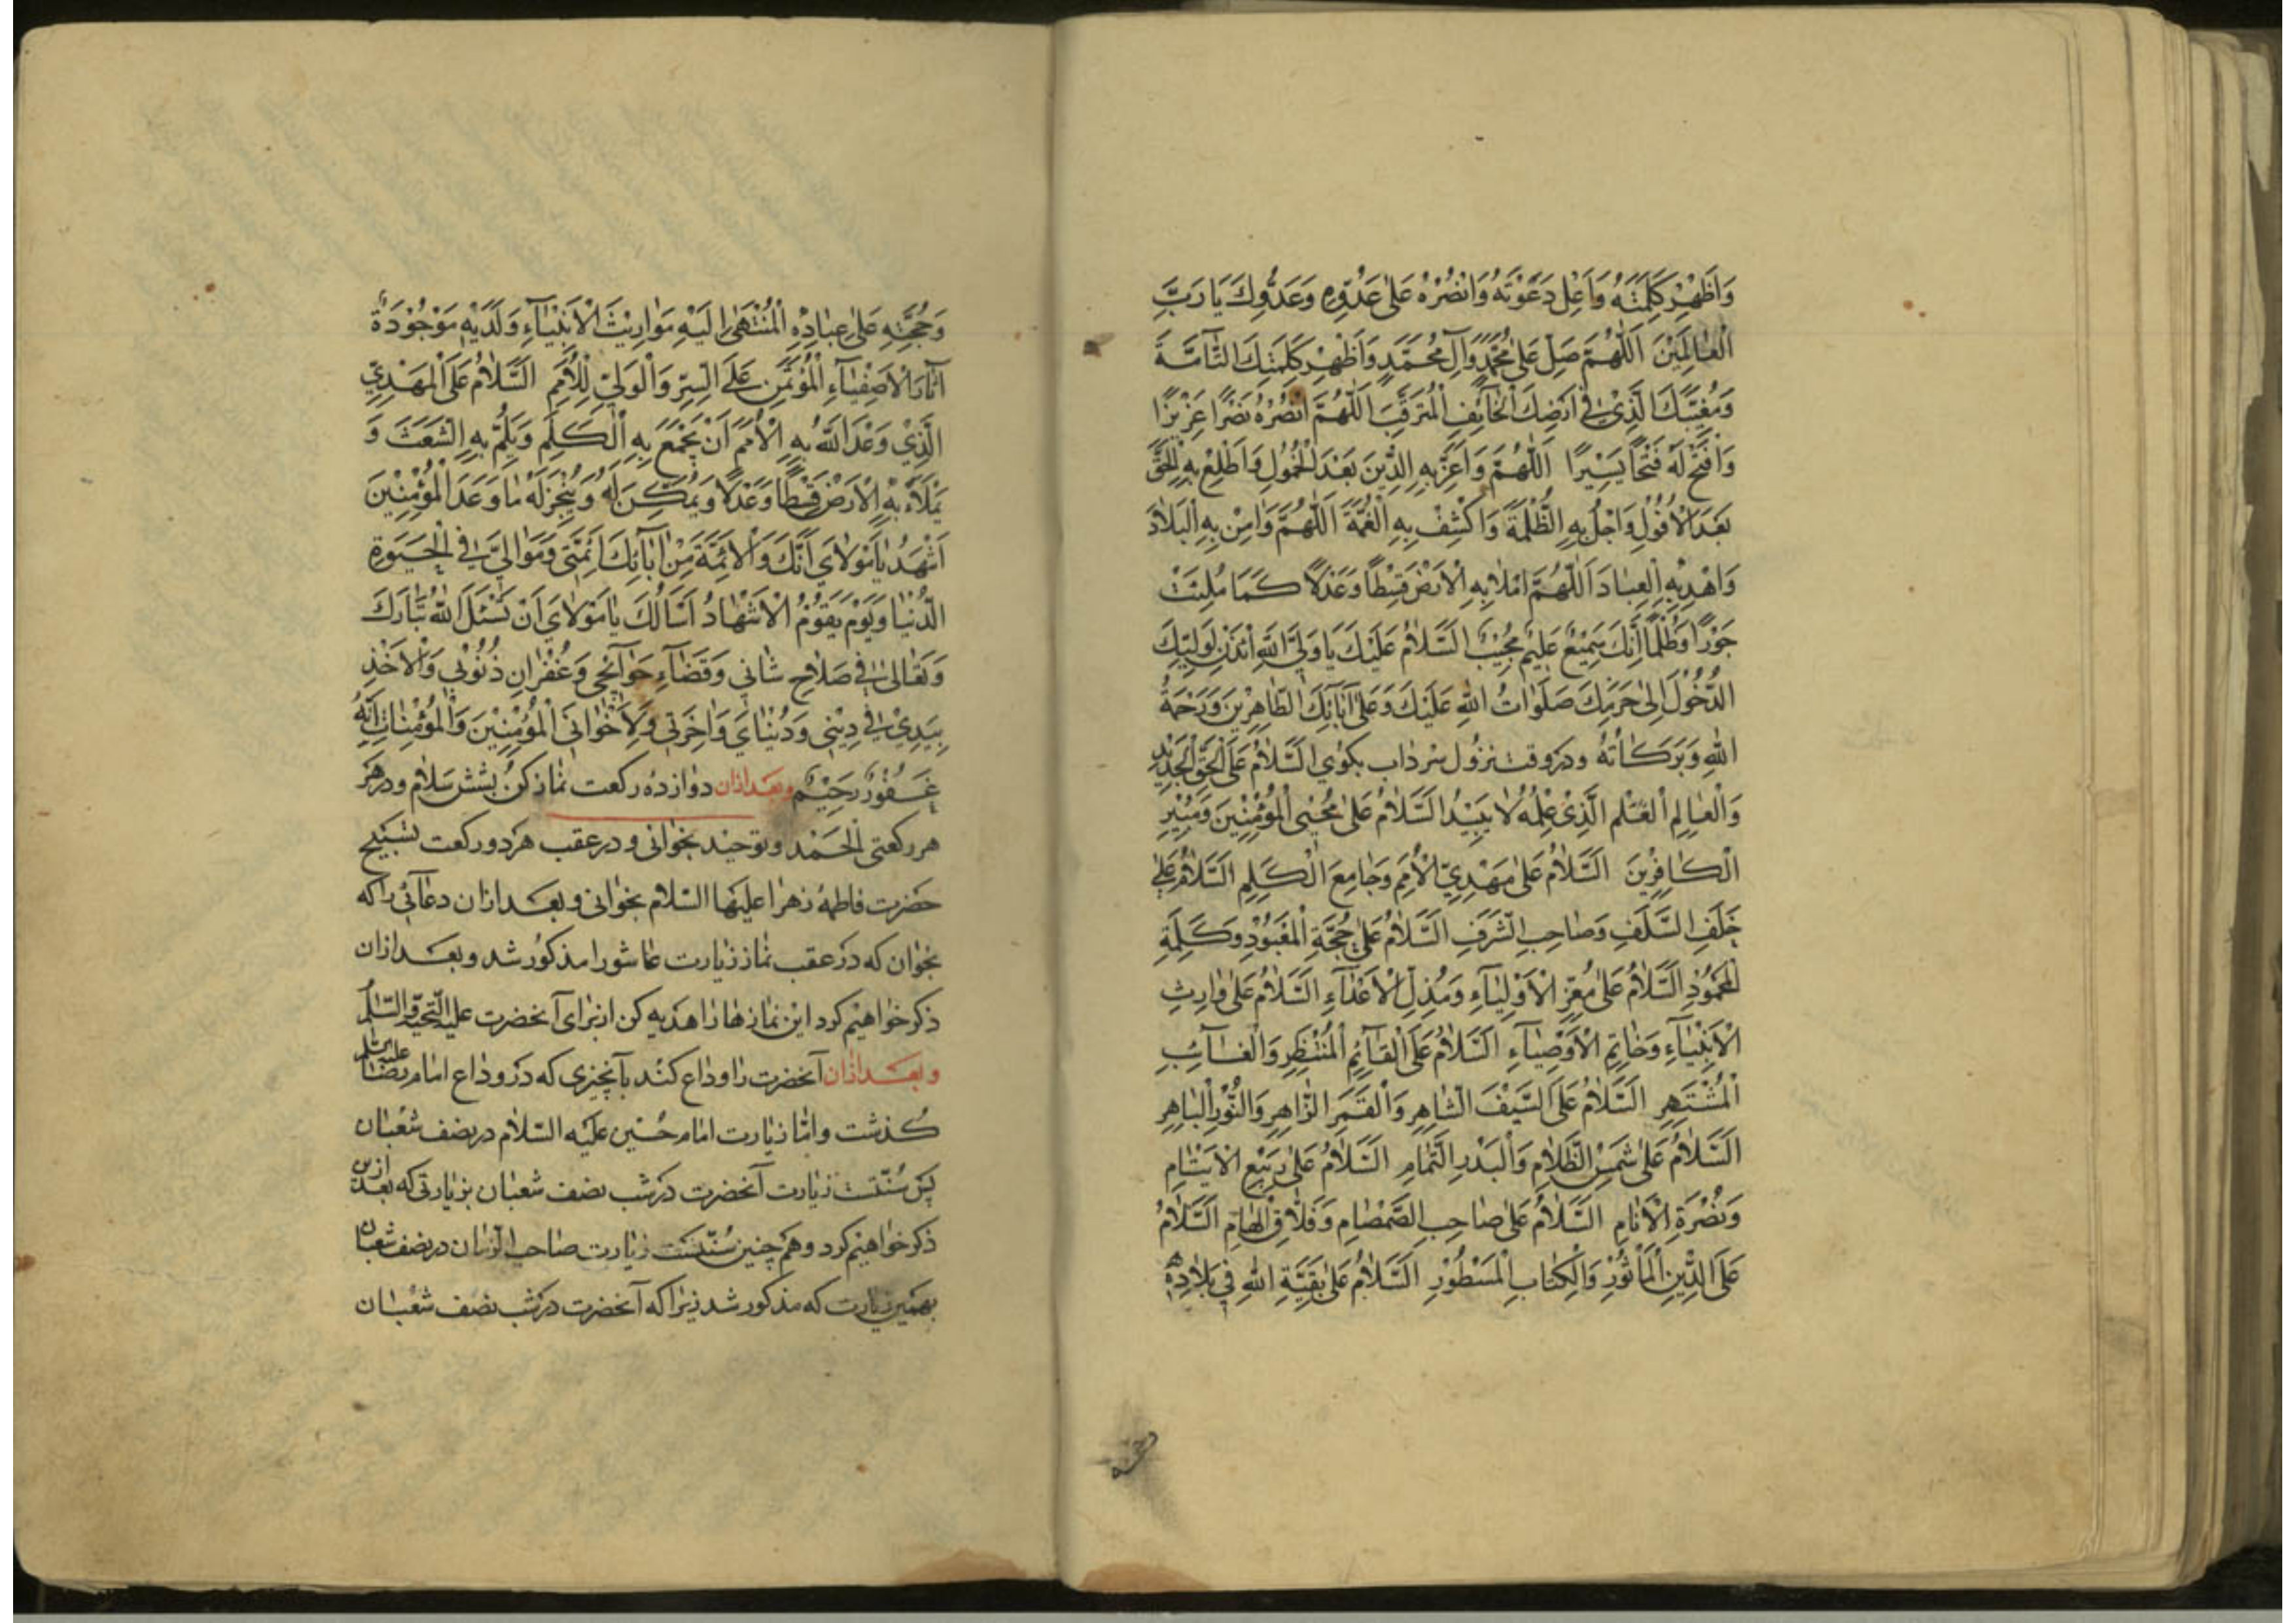 وَاَظْهِرْ كَلِمَتَهُ وَاَعْلِ دَعْوَتَهُ وَانْصُرْهُ عَلىٰ عَدُوِّهِ وَعَدُوِّكَ يَا رَبَّ
الْعٰالَمِيْنَ اَللّٰهُمَّ صَلِّ عَلىٰ مُحَمَّدٍ وَآلِ مُحَمَّدٍ وَاَظْهِرْ كَلِمَتَكَ التّٰآمَّةَ
وَمُغَيَّبَكَ الَّذِيْ فِيْ اَرْضِكَ الْخٰآئِفِ الْمُتَرَقِّبَ اَللّٰهُمَّ انْصُرْهُ نَصْرًا عَزِيْزًا
وَافْتَحْ لَهُ فَتْحًا يَسِيْرًا اَللّٰهُمَّ وَاَعِزَّ بِهِ الدِّيْنَ بَعْدَ الْخُمُولِ وَاَطْلِعْ بِهِ الْحَقَّ
بَعْدَ الْاُفُوْلِ وَاجْلُ بِهِ الظُّلْمَةَ وَاكْشِفْ بِهِ الْغُمَّةَ اَللّٰهُمَّ وَاٰمِنْ بِهِ الْبَلاٰدَ
وَاهْدِ بِهِ الْعِبٰادَ اَللّٰهُمَّ امْلَاْ بِهِ الْاَرْضَ قِسْطًا وَعَدْلًا كَمَا مُلِئَتْ
جَوْرًا وَظُلْمًا اِنَّكَ سَمِيْعٌ عَلِيْمٌ مُجِيْبٌ اَلسَّلاٰمُ عَلَيْكَ يَا وَلِيَّ اللّٰهِ ائْذَنْ لِوَلِيِّكَ
الدُّخُوْلَ اِلىٰ حَرَمِكَ صَلَوٰاتُ اللّٰهِ عَلَيْكَ وَعَلىٰ اٰبٰآئِكَ الطّٰاهِرِيْنَ وَرَحْمَةُ
اللّٰهِ وَبَرَكٰاتُهُ ودر وقت نزول سرداب بكوي اَلسَّلاٰمُ عَلَى الْحَقِّ الْجَدِيْدِ
وَالْعٰالِمِ الْعَلَمِ الَّذِيْ عِلْمُهُ لاٰ يَبِيْدُ اَلسَّلاٰمُ عَلىٰ مُحْيِي الْمُؤْمِنِيْنَ وَمُبِيْرِ
الْكٰافِرِيْنَ اَلسَّلاٰمُ عَلىٰ مَهْدِيِّ الْاُمَمِ وَجٰامِعِ الْكَلِمِ اَلسَّلاٰمُ عَلىٰ
خَلَفِ السَّلَفِ وَصٰاحِبِ الشَّرَفِ اَلسَّلاٰمُ عَلىٰ حُجَّةِ الْمَعْبُوْدِ وَكَلِمَةِ
الْمَحْمُوْدِ اَلسَّلاٰمُ عَلىٰ مُعِزِّ الْاَوْلِيٰآءِ وَمُذِلِّ الْاَعْدٰآءِ اَلسَّلاٰمُ عَلىٰ وٰارِثِ
الْاَنْبِيٰآءِ وَخٰاتِمِ الْاَوْصِيٰآءِ اَلسَّلاٰمُ عَلَى الْقٰآئِمِ الْمُنْتَظَرِ وَالْغٰآئِبِ
الْمُشْتَهِرِ اَلسَّلاٰمُ عَلَى السَّيْفِ الشّٰاهِرِ وَالْقَمَرِ الزّٰاهِرِ وَالنُّوْرِ الْبٰاهِرِ
اَلسَّلاٰمُ عَلىٰ شَمْسِ الظَّلاٰمِ وَالْبَدْرِ التَّمٰامِ اَلسَّلاٰمُ عَلىٰ رَبِيْعِ الْاَيْتٰامِ
وَنُصْرَةِ الْاَنٰامِ اَلسَّلاٰمُ عَلىٰ صٰاحِبِ الصَّمْصٰامِ وَفَلاّٰقِ الْهٰامِ اَلسَّلاٰمُ
عَلَى الدِّيْنِ الْمَأْثُوْرِ وَالْكِتٰابِ الْمَسْطُوْرِ اَلسَّلاٰمُ عَلىٰ بَقِيَّةِ اللّٰهِ فِي بَلاٰدِهِ
وحجته
وَحُجَّتِهِ عَلىٰ عِبٰادِهِ الْمُنْتَهىٰ اِلَيْهِ مَوٰارِيْثُ الْاَنْبِيٰآءِ وَلَدَيْهِ مَوْجُوْدَةٌ
اٰثٰارُ الْاَصْفِيٰآءِ الْمُؤْتَمَنِ عَلَى السِّرِّ وَالْوَلِيِّ لِلْاُمَمِ اَلسَّلاٰمُ عَلَى الْمَهْدِيِّ
الَّذِيْ وَعَدَ اللّٰهُ بِهِ الْاُمَمَ اَنْ يَجْمَعَ بِهِ الْكَلِمَ وَيَلُمَّ بِهِ الشَّعَثَ وَ
يَمْلَاَ بِهِ الْاَرْضَ قِسْطًا وَعَدْلًا وَيُمَكِّنَ لَهُ وَيُنْجِزَ لَهُ مٰا وَعَدَ الْمُؤْمِنِيْنَ
اَشْهَدُ يٰا مَوْلاٰيَ اَنَّكَ وَالْاَئِمَّةَ مِنْ اٰبٰآئِكَ اَئِمَّتِيْ وَمَوٰالِيَّ فِي الْحَيٰوةِ
الدُّنْيٰا وَيَوْمَ يَقُوْمُ الْاَشْهٰادُ اَسْاَلُكَ يٰا مَوْلاٰيَ اَنْ تَسْئَلَ اللّٰهَ تَبٰارَكَ
وَتَعٰالىٰ فِيْ صَلاٰحِ شٰاْنِي وَقَضٰآءِ حَوٰآئِجِي وَغُفْرٰانِ ذُنُوْبِي وَالْاَخْذِ
بِيَدِيْ فِيْ دِيْنِي وَدُنْيٰايَ وَاٰخِرَتِي وَلِاِخْوٰانِيَ الْمُؤْمِنِيْنَ وَالْمُؤْمِنٰاتِ اِنَّهُ
غَفُوْرٌ رَحِيْمٌ وبعد ازان دوازده ركعت نماز كن بشش سلام ودر هر
هر ركعتى الحمد وتوحيد بخوانى و در عقب هر دو ركعت تسبيح
حضرت فاطمهٔ زهرا عليها السلام بخوانى و بعد ازان دعائى را كه
بخوان كه در عقب نماز زيارت عاشورا مذكور شد و بعد ازان
ذكر خواهيم كرد اين نمازها را هديه كن از براى آنحضرت عليه التحية والسلم
و بعد ازان آنحضرت را وداع كند بآنچيزى كه در وداع امام رضا عليه السلم
كذشت واما زيارت امام حسين عليه السلام در نصف شعبان
پس سنّتست زيارت آنحضرت در شب نصف شعبان بزيارتى كه بعد ازين
ذكر خواهيم كرد و هم چنين سنّتست زيارت صاحب الزمان در نصف شعبان
بهمين زيارت كه مذكور شد زيرا كه آنحضرت در شب نصف شعبان